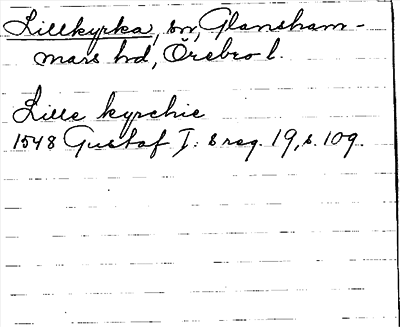 Lillkyrka, sn, Glansham-
mars hd, Örebro l.
Lille kyrchie
1548 Gustaf I: s reg. 19, s. 109.